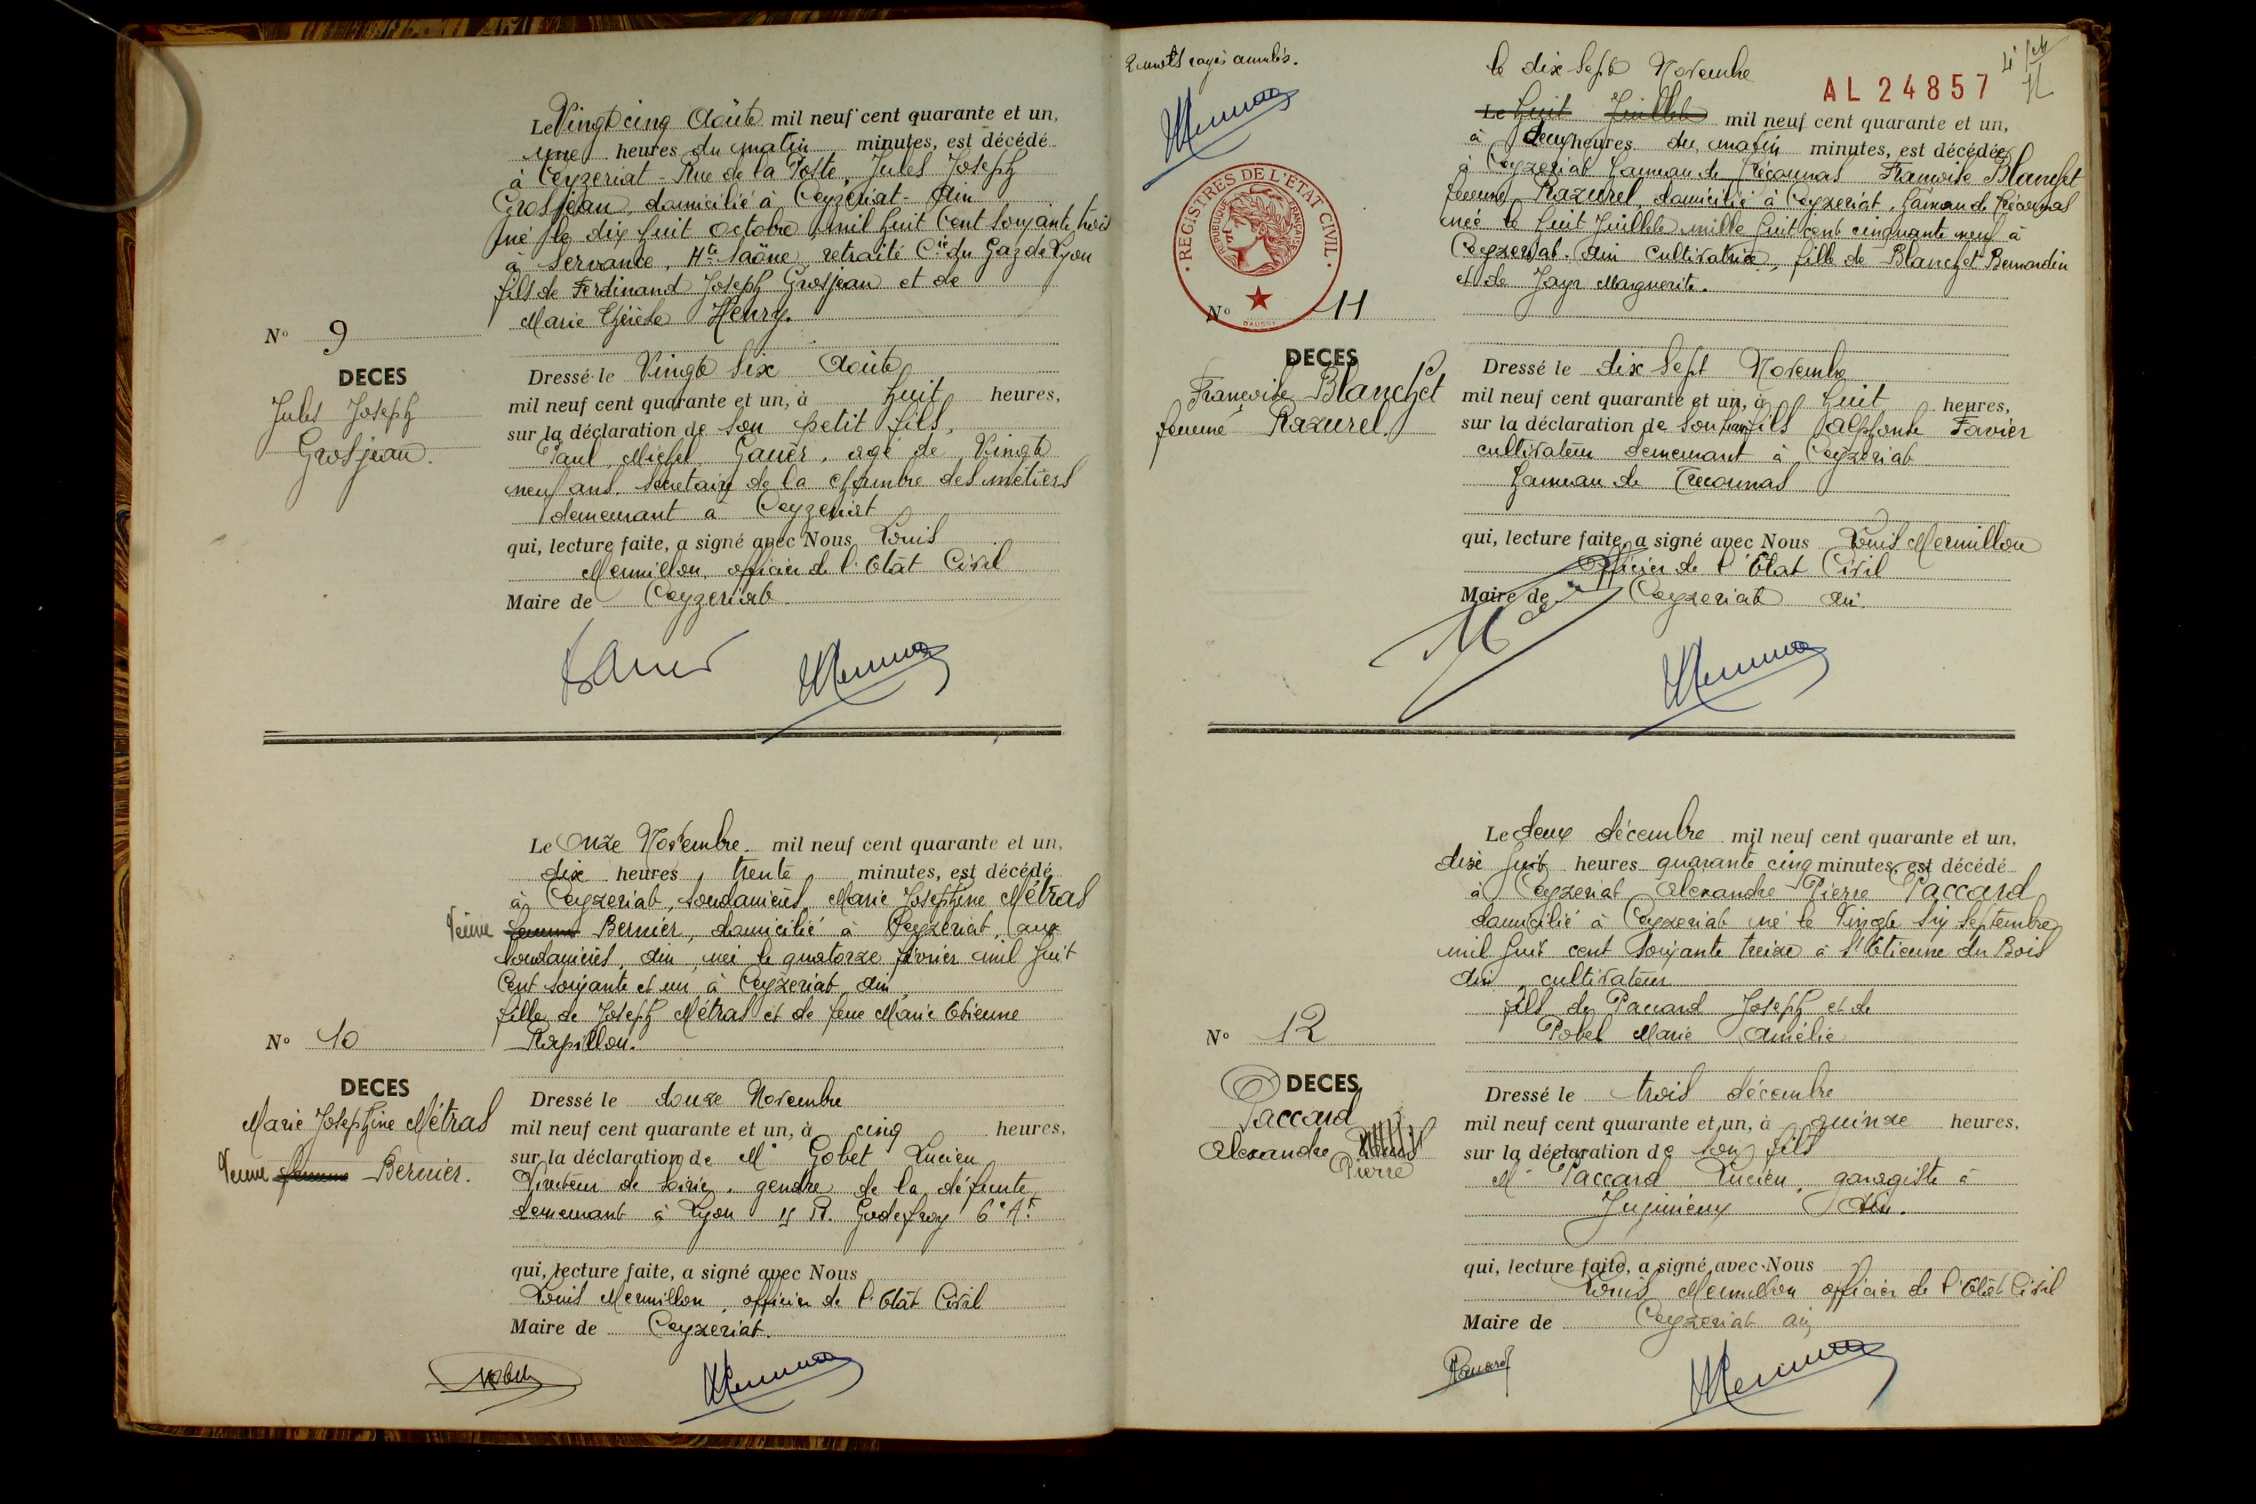 Le Vingt cinq Août mil neuf cent quarante et un,
une heures du matin minutes, est décédé
à Ceyzeriat - Rue de la Poste, Jules Joseph
Grosjean, domicilié à Ceyzeriat - Ain
né le dix huit octobre mil huit cent soixante trois
à Servance, Hte Saône, retraité Cie du Gaz de Lyon
fils de Ferdinand Joseph Grosjean et de
Marie Thérèse Henry.
No 9
DECES
Jules Joseph
Grosjean.
Dressé le Vingt Six Août
mil neuf cent quarante et un, à huit heures,
sur la déclaration de son petit fils,
Paul Michel Gauer, agé de Vingt
neuf ans, secretaire de la chambre des métiers
demeurant à Ceyzeriat
qui, lecture faite, a signé avec Nous Louis
Mermillon, officier de l'Etat Civil
Maire de Ceyzeriat
Le Onze Novembre mil neuf cent quarante et un,
dix heures trente minutes, est décédé
à Ceyzeriat, Soudanières Marie Josephine Métras
Veuve femme Bernier, domicilié à Ceyzeriat, aux
Soudanières, Ain, née le quatorze février mil huit
Cent soixante et un à Ceyzeriat Ain,
fille de Joseph Métras et de feue Marie Etienne
Rapillon.
No 10
DECES
Marie Josephine Métras
Veuve femme Bernier.
Dressé le douze Novembre
mil neuf cent quarante et un, à cinq heures,
sur la déclaration de Mr Gobet Lucien
Directeur de Soirie, gendre de la défunte
demeurant à Lyon R. Godefroy 6e At
qui, lecture faite, a signé avec Nous
Louis Mermillon, officier de l'Etat Civil
Maire de Ceyzeriat.
2 mots rayés annulés.
le dix Sept Novembre
AL 24857
Le Huit Juillet mil neuf cent quarante et un,
à deux heures du matin minutes, est décédée
à Ceyzeriat hameau de Trécounas Francoise Blanchet
femme Razurel, domicilié à Ceyzeriat, hameau de Trécounas
née le huit Juillet mille huit cent cinquante neuf à
Ceyzeriat. Ain Cultivatrice, fille de Blanchet Bernardin
et de Jayr Marguerite.
REGISTRES DE L'ÉTAT CIVIL
RÉPUBLIQUE FRANÇAISE
No 11
DECES
Francoise Blanchet
femme Razurel.
Dressé le dix Sept Novembre
mil neuf cent quarante et un, à huit heures,
sur la déclaration de son beau fils Alphonse Favier
cultivateur demeurant à Ceyzeriat
hameau de Trécounas
qui, lecture faite, a signé avec Nous Louis Mermillon
Officier de l'Etat Civil
Maire de Ceyzeriat Ain.
Le deux décembre mil neuf cent quarante et un,
dix huit heures quarante cinq minutes, est décédé
à Ceyzeriat Alexandre Pierre Paccard
domicilié à Ceyzeriat né le Vingt Six Septembre
mil huit cent soixante treize à St Etienne du Bois
Ain cultivateur
fils de Paccard Joseph et de
Pobel Marie Amélie
No 12
DECES
Paccard
Alexandre
Pierre
Dressé le trois décembre
mil neuf cent quarante et un, à quinze heures,
sur la déclaration de son fils
Mr Paccard Lucien, garagiste à
Jujurieux Ain.
qui, lecture faite, a signé avec Nous
Louis Mermillon officier de l'Etat Civil
Maire de Ceyzeriat Ain
Paccard